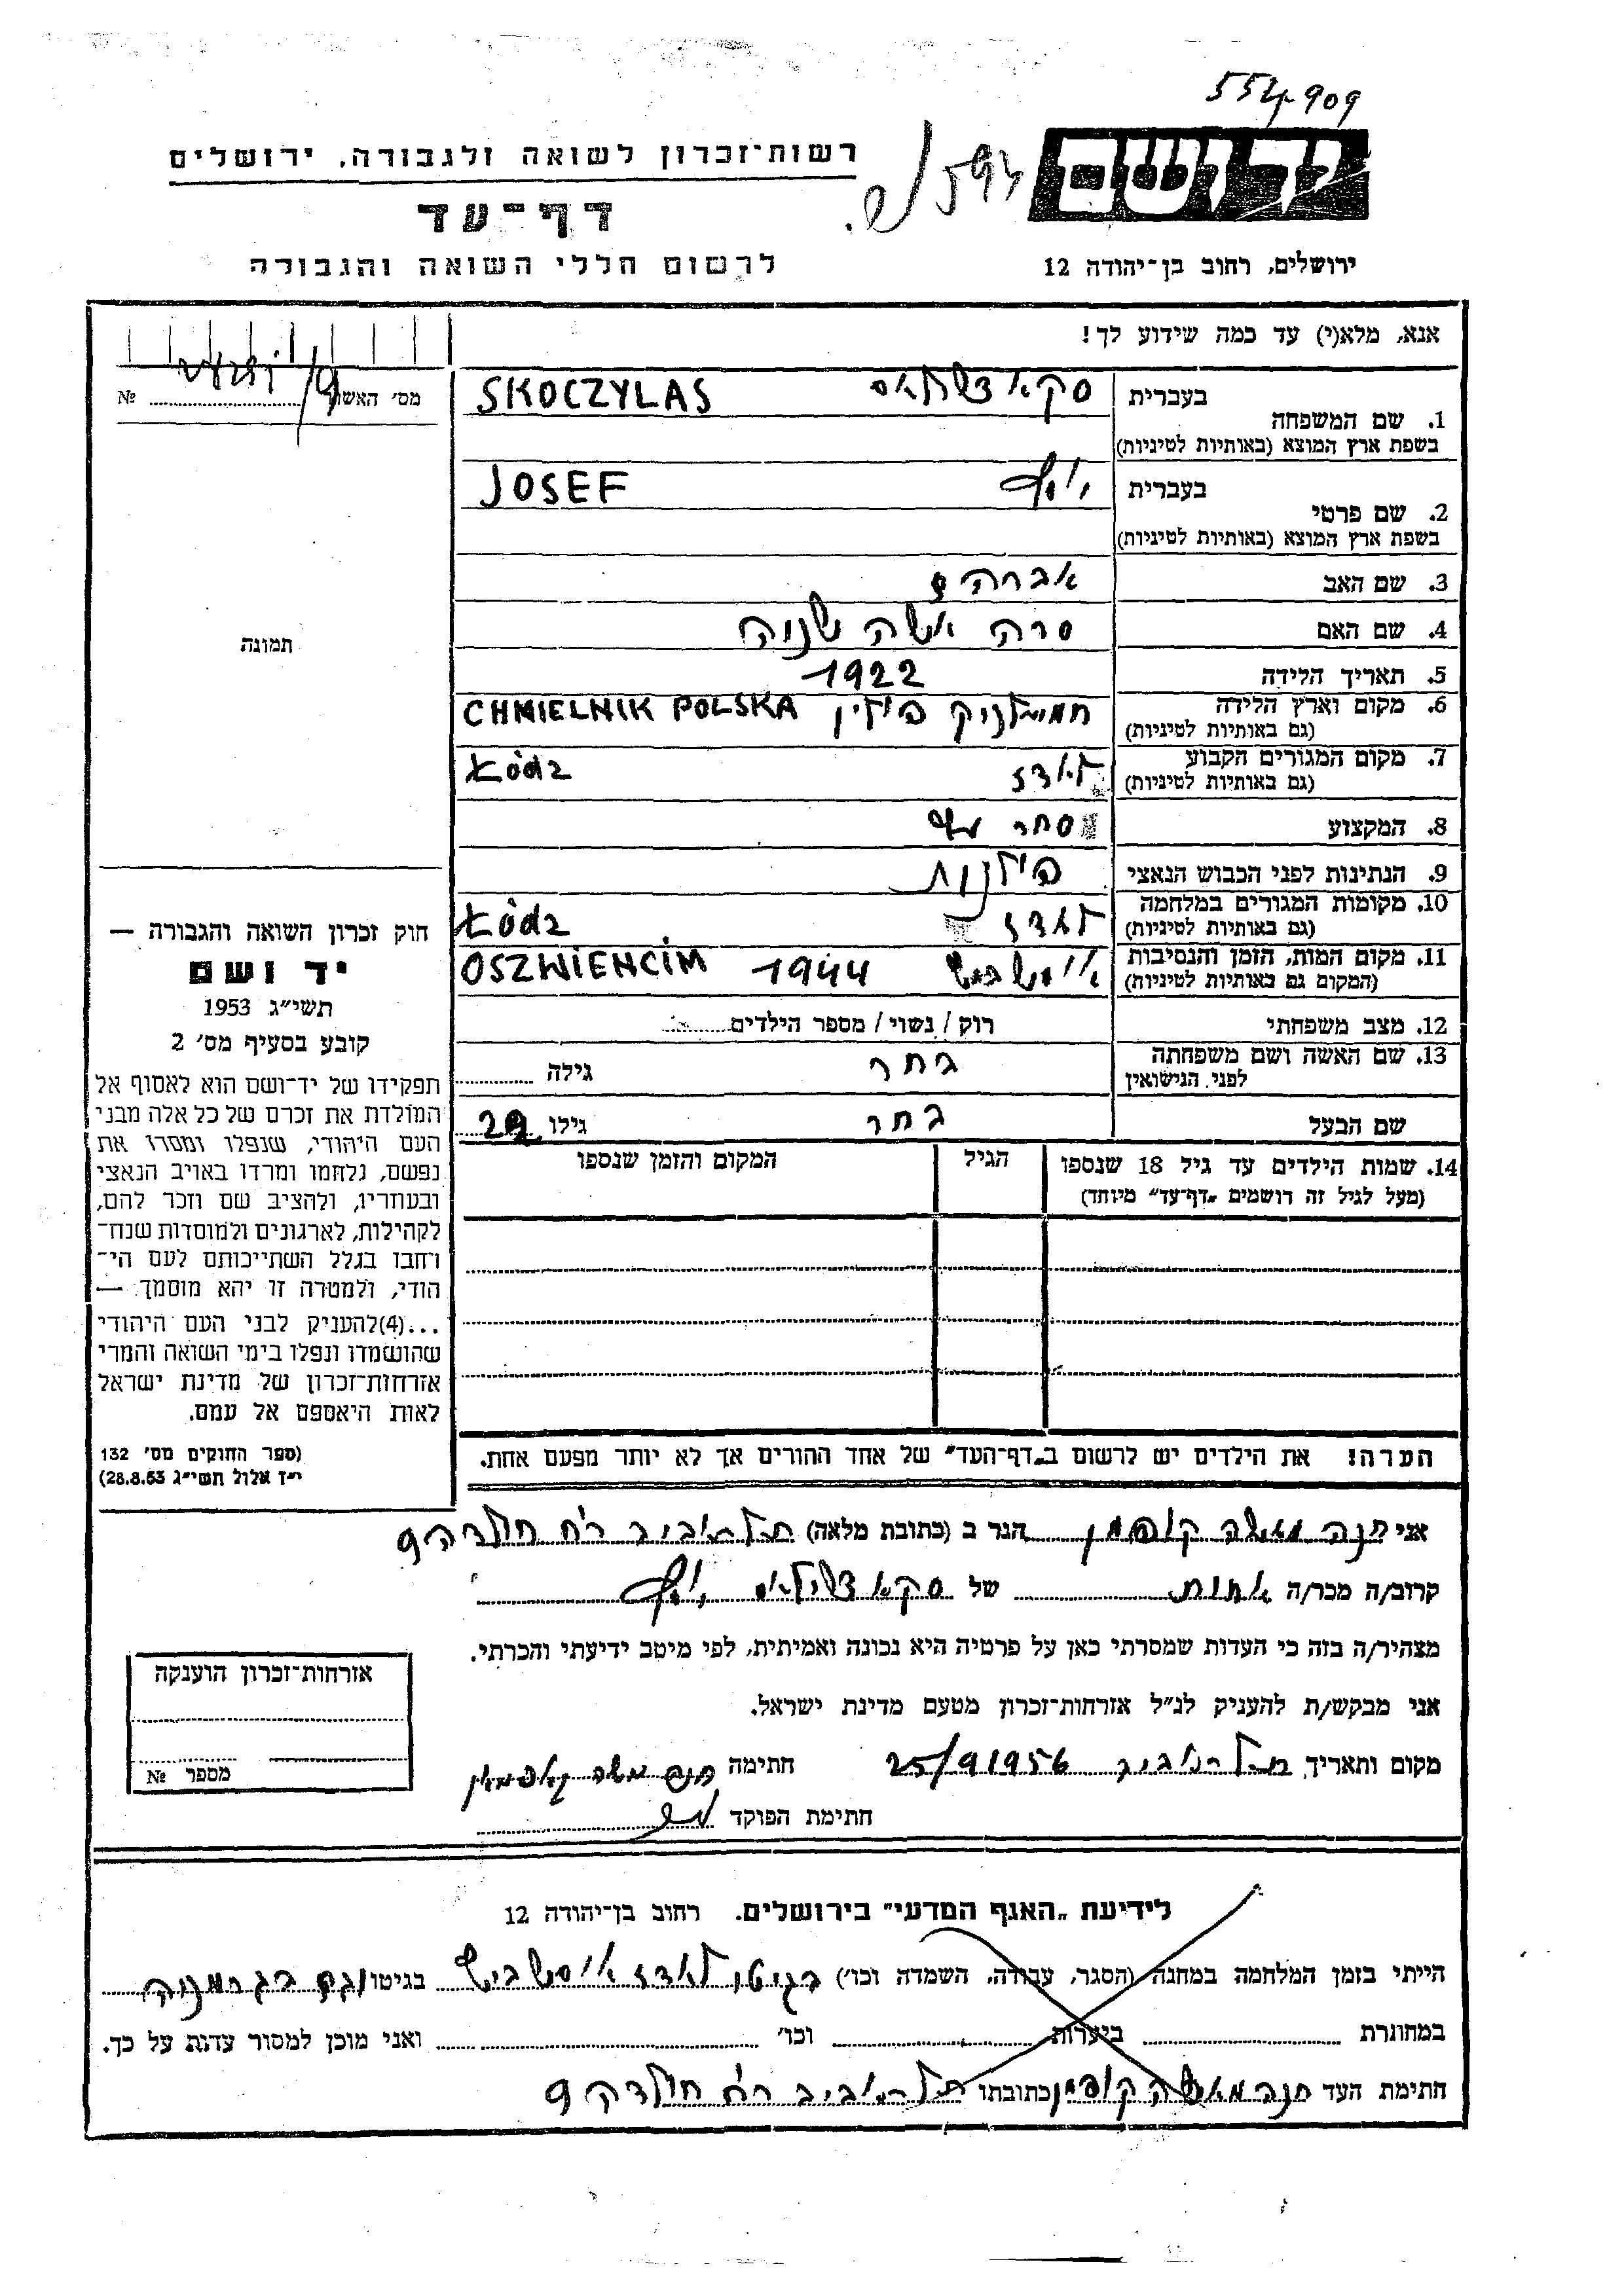 554909
רשות־זכרון לשואה ולגבורה, ירושלים
יד ושם
דף־עד
לרשום חללי השואה והגבורה
ירושלים, רחוב בן־יהודה 12
אנא, מלא(י) עד כמה שידוע לך!
מס' האשה №
בעברית
1. שם המשפחה
בשפת ארץ המוצא (באותיות לטיניות)
SKOCZYLAS
בעברית יוסף
2. שם פרטי
בשפת ארץ המוצא (באותיות לטיניות)
JOSEF
3. שם האב אברהם
4. שם האם שרה אשה שניה
5. תאריך הלידה 1922
6. מקום וארץ הלידה חמילניק פולין CHMIELNIK POLSKA
(גם באותיות לטיניות)
7. מקום המגורים הקבוע לאדז Łódz
(גם באותיות לטיניות)
8. המקצוע סחר
9. הנתינות לפני הכבוש הנאצי פולנית
10. מקומות המגורים במלחמה לאדז Łódz
(גם באותיות לטיניות)
11. מקום המות, הזמן והנסיבות אושביץ 1944 OSZWIENCIM
(המקום גם באותיות לטיניות)
12. מצב משפחתי רוק / נשוי / מספר הילדים
13. שם האשה ושם משפחתה בחר גילה
לפני הנישואין
שם הבעל בחר גילו
14. שמות הילדים עד גיל 18 שנספו הגיל המקום והזמן שנספו
(מעל לגיל זה רושמים „דף־עד" מיוחד)
הערה! את הילדים יש לרשום ב„דף־העד" של אחד ההורים אך לא יותר מפעם אחת.
תמונה
חוק זכרון השואה והגבורה —
יד ושם
תשי"ג 1953
קובע בסעיף מס' 2
תפקידו של יד־ושם הוא לאסוף אל
המולדת את זכרם של כל אלה מבני
העם היהודי, שנפלו ומסרו את
נפשם, נלחמו ומרדו באויב הנאצי
ובעוזריו, ולהציב שם וזכר להם,
לקהילות, לארגונים ולמוסדות שנח־
רחבו בגלל השתייכותם לעם הי־
הודי, ולמטרה זו יהא מוסמך —
...(4)להעניק לבני העם היהודי
שהושמדו ונפלו בימי השואה והמרי
אזרחות־זכרון של מדינת ישראל
לאות היאספם אל עמם.
(ספר החוקים מס' 132
י"ז אלול תשי"ג 28.8.53)
אני חנה קופמן הגר ב (כתובת מלאה) תל־אביב רח חולדה 9
קרוב/ה מכר/ה אחות של יוסף
מצהיר/ה בזה כי העדות שמסרתי כאן על פרטיה היא נכונה ואמיתית, לפי מיטב ידיעתי והכרתי.
אני מבקש/ת להעניק לנ"ל אזרחות־זכרון מטעם מדינת ישראל.
מקום ותאריך תל־אביב 25/9 1956 חתימה
חתימת הפוקד
אזרחות־זכרון הוענקה
מספר №
לידיעת „האגף המדעי" בירושלים. רחוב בן־יהודה 12
הייתי בזמן המלחמה במחנה (הסגר, עבודה, השמדה וכו') בגיטו לאדז אושביץ בגיטו וגם בגרמניה
במחתרת ביערות וכו' ואני מוכן למסור עדות על כך.
חתימת העד חנה קופמן כתובתו תל־אביב רח חולדה 9